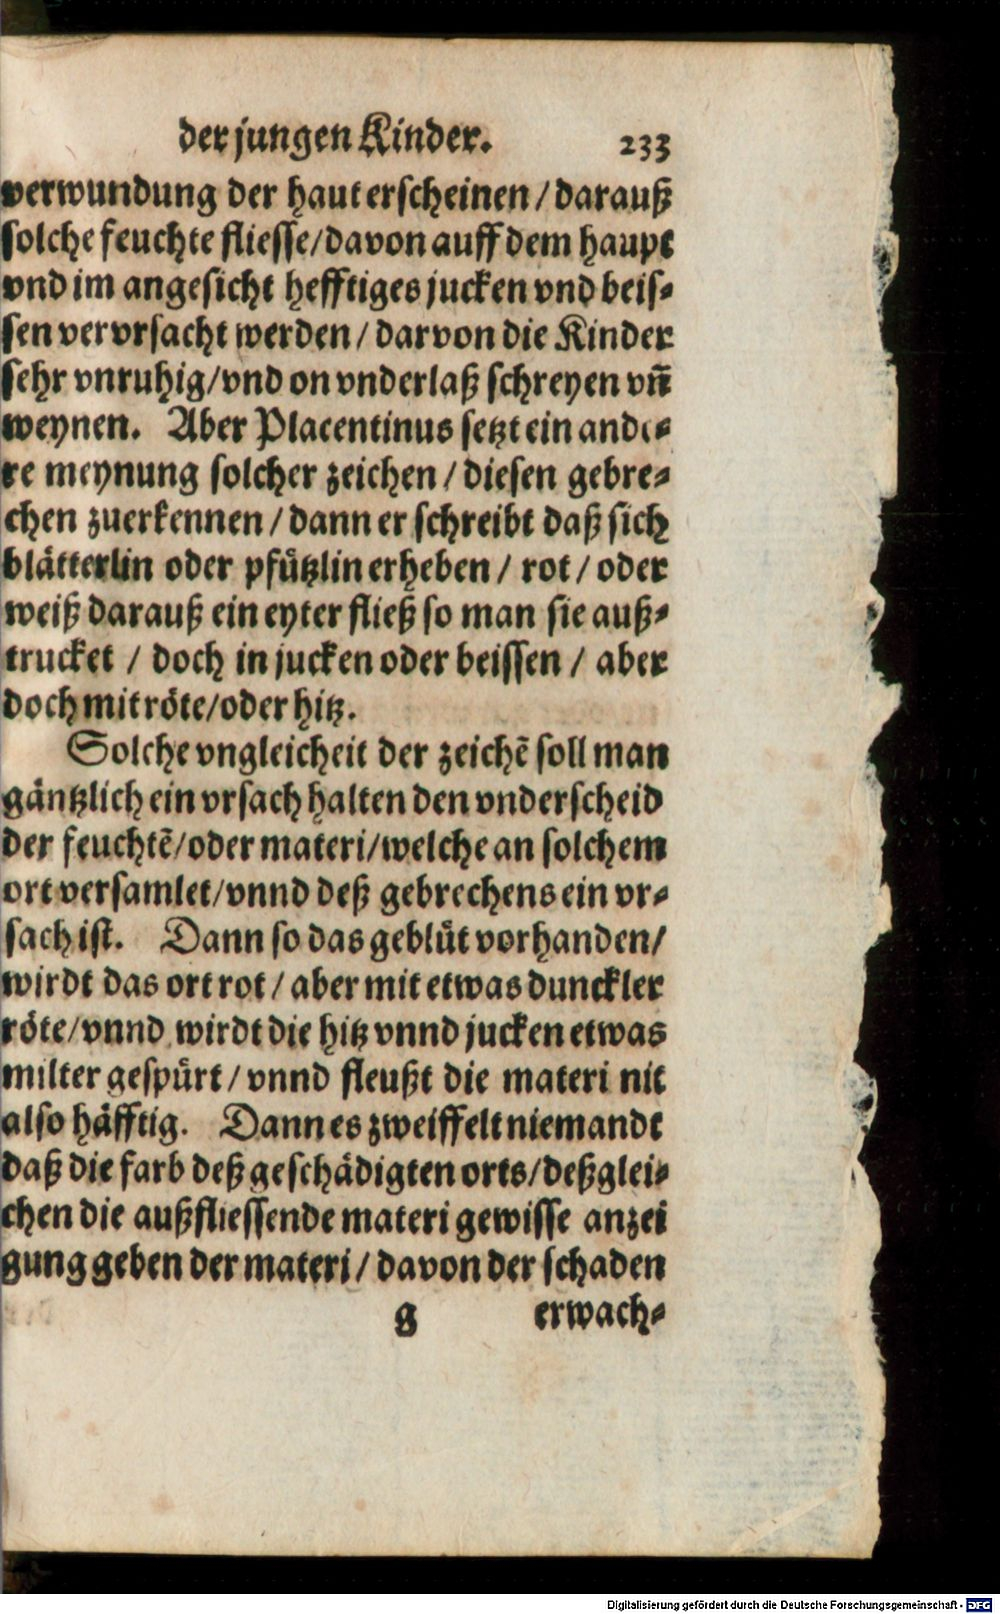 der jungen Kinder. 233
verwundung der haut erscheinen / darauß
solche feuchte fliesse/davon auff dem haupt
vnd im angesicht hefftiges jucken vnd beis-
sen vervrsacht werden / darvon die Kinder
sehr vnruhig/vnd on vnderlaß schreyen vñ
weynen. Aber Placentinus setzt ein ande-
re meynung solcher zeichen / diesen gebre-
chen zuerkennen / dann er schreibt daß sich
blätterlin oder pfützlin erheben / rot / oder
weiß darauß ein eyter fließ so man sie auß-
trucket / doch in jucken oder beissen / aber
doch mit röte/oder hitz.
Solche vngleicheit der zeichẽ soll man
gäntzlich ein vrsach halten den vnderscheid
der feuchtẽ/oder materi/welche an solchem
ort versamlet/vnnd deß gebrechens ein vr-
sach ist. Dann so das geblüt vorhanden/
wirdt das ort rot / aber mit etwas dunckler
röte/vnnd wirdt die hitz vnnd jucken etwas
milter gespürt / vnnd fleußt die materi nit
also häfftig. Dann es zweiffelt niemandt
daß die farb deß geschädigten orts/deßglei-
chen die außfliessende materi gewisse anzei
gung geben der materi / davon der schaden
g erwach-
Digitalisierung gefördert durch die Deutsche Forschungsgemeinschaft - DFG